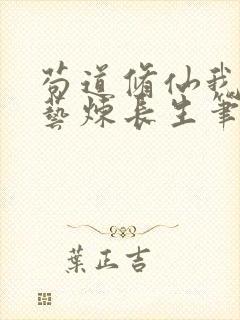 苟道脩仙我
藝煉長生筆
葉正吉